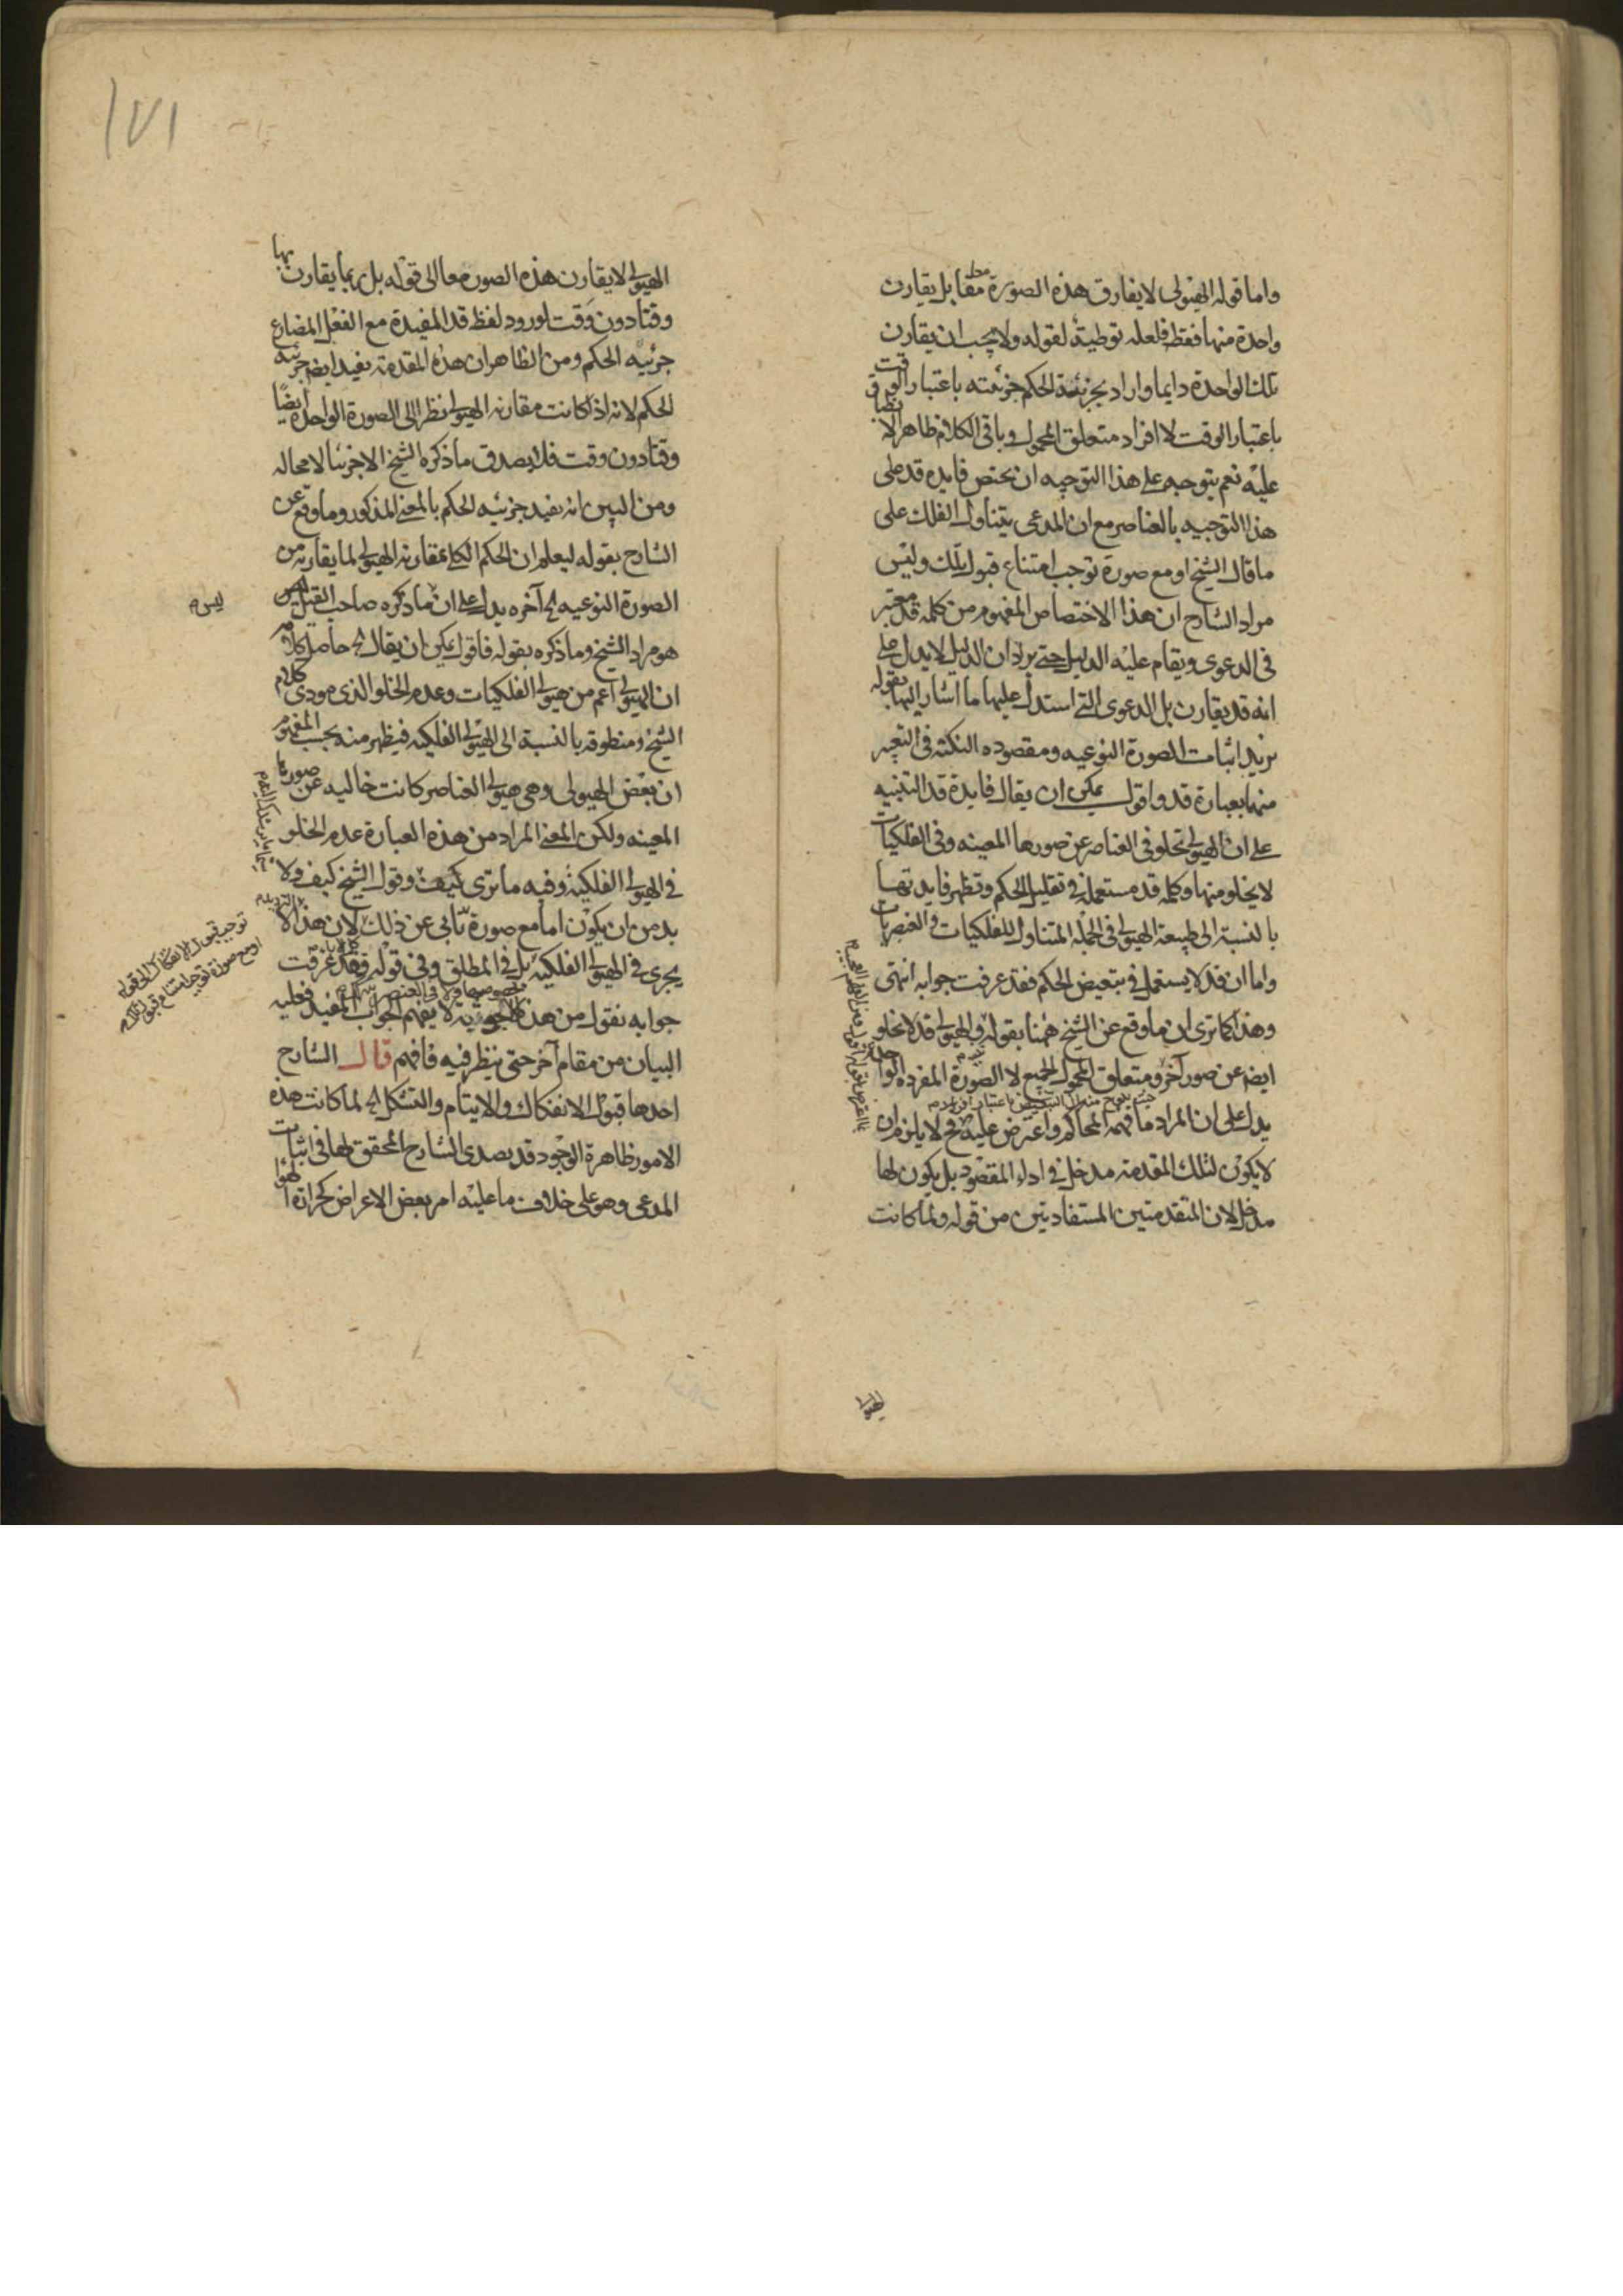 واما قوله الهيولى لا يفارق هذه الصورة معا بل يقارن
واحدة منها فقط فلعله توطية لقوله ولا يجب ان يقارن
تلك الواحدة دايما واراد بجزئية الحكم جزئيته باعتبار الوقت
باعتبار الوقت لا افراد متعلق المحمول وباقى الكلام ظاهر لا
عليه نعم يتوجه على هذا التوجيه ان يختص فايدة قد على
هذا التوجيه بالعناصر مع ان المدعى يتناول الفلك على
ما قال الشيخ او مع صورة توجب امتناع قبول تلك وليس
مراد الشارح ان هذا الاختصاص المفهوم من كلمة قد معتبر
فى الدعوى ويقام عليه الدليل حتى يرد ان الدليل لا يدل على
انه قد يقارن بل الدعوى التى استدل عليها ما اشار اليها بقوله
نريد اثبات الصورة النوعيه ومقصوده النكتة فى التعبير
منها بعبارة قد واقول يمكن ان يقال فايدة قد التنبيه
على ان الهيولى تخلو فى العناصر عن صورها المعينه وفى الفلكيات
لا يخلو منها وكلمة قد مستعملة فى تقليل الحكم وتظهر فايدتها
بالنسبة الى طبيعة الهيولى فى الجملة المتناول للفلكيات والعنصريات
واما ان قد لا يستعمل فى تبعيض الحكم فقد عرفت جوابه انتهى
وهذا كما ترى ان ما وقع عن الشيخ ههنا بقوله والهيولى قد لا تخلو
ايضا عن صور آخر ومتعلق المحمول الجميع لا الصورة المفردة الواحدة
يدل على ان المراد ما فهمه المحاكم واعترض عليه فح لا يلزم ان
لا يكون لتلك المقدمة مدخل فى اداء المقصود بل يكون لها
مدخل لان المتقدمتين المستفادتين من قوله ولما كانت
الهيولى
١٧١
الهيولى لا يقارن هذه الصور معا الى قوله بل ربما يقارن بها
وقتا دون وقت لورود لفظ قد المفيدة مع الفعل المضارع
جزئيه الحكم ومن الظاهر ان هذه المقدمة يفيد ايضا جزئيه
الحكم لانه اذا كانت مقارنه الهيولى نظرا الى الصورة الواحدة ايضًا
وقتا دون وقت فلا يصدق ما ذكره الشيخ الا جزئيا لا محاله
ومن البين انه يفيد جزئيه الحكم بالمعنى المذكور وما وقع عن
الشارح بقوله ليعلم ان الحكم الكلى بمقارنه الهيولى لما يقارنه من
الصورة النوعيه الخ آخره يدل على ان ما ذكره صاحب القيل ليس
ليس م
هو مراد الشيخ وما ذكره بقوله فاقول يمكن ان يقال الخ حاصل كلامه
ان الهيولى اعم من هيولى الفلكيات وعدم الخلو الذى مودى كلام
الشيخ ومنطوقه بالنسبة الى الهيولى الفلكيه فيظهر منه بحسب المفهوم
ان بعض الهيولى وهى هيولى العناصر كانت خاليه عن صورها
المعينه ولكن المعنى المراد من هذه العبارة عدم الخلو
فى الهيولى الفلكيه وفيه ما ترى كيف وقول الشيخ كيف ولا
بد من ان يكون اما مع صورة تابى عن ذلك لان هذا لا
يجرى فى الهيولى الفلكيه بل فى المطلق وفى قوله فقد عرفت
جوابه نقول من هذه لا يفهم الجواب المفيد فعليه
البيان من مقام آخر حتى ينظر فيه فافهم قال الشارح
احدها قبول الانفكاك والالتيام والتشكل الخ لما كانت هذه
الامور ظاهرة الوجود قد تصدى الشارح المحقق لها فى اثبات
المدعى وهو على خلاف ما عليه امر بعض الاعراض كحرارة الهوا